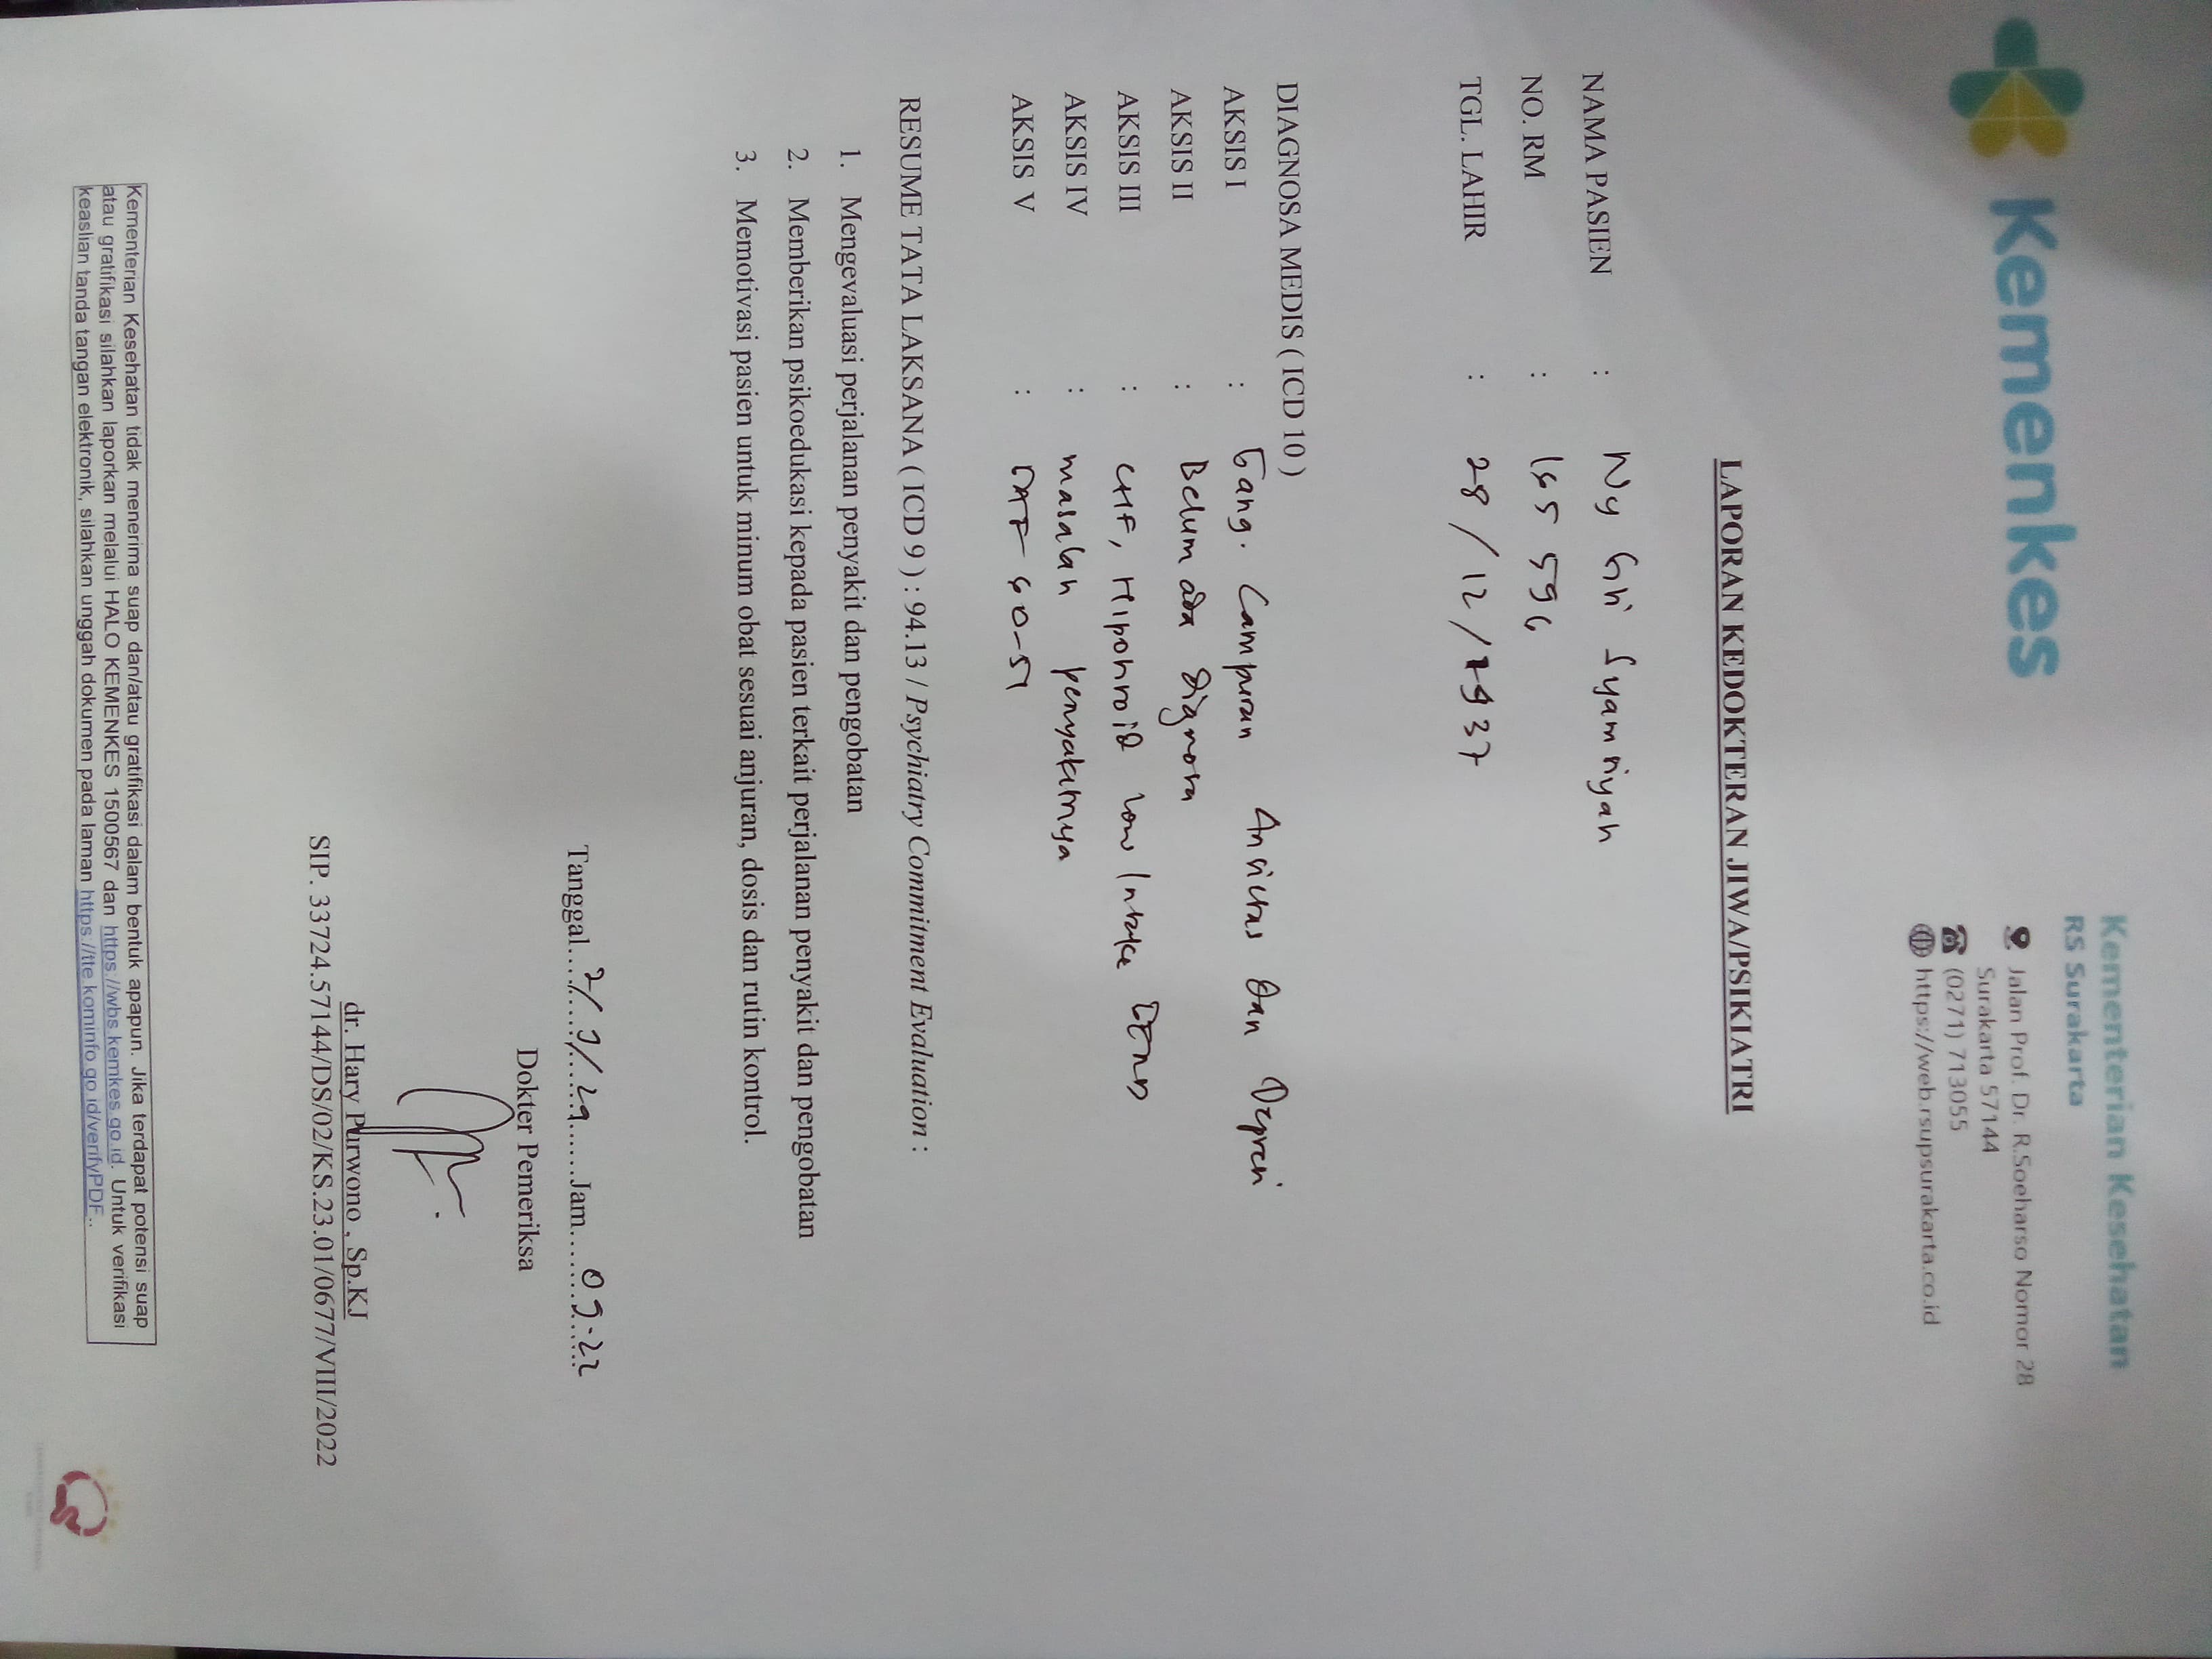 Kemenkes
Kementerian Kesehatan
RS Surakarta
Jalan Prof. Dr. R.Soeharso Nomor 28
Surakarta 57144
(0271) 713055
https://web.rsupsurakarta.co.id
LAPORAN KEDOKTERAN JIWA/PSIKIATRI
NAMA PASIEN : Ny Syamsiyah
NO. RM :
TGL. LAHIR : 28/12/1937
DIAGNOSA MEDIS ( ICD 10 )
AKSIS I : Gang. Campuran Ansietas dan Depresi
AKSIS II : Belum ada diagnosa
AKSIS III : CHF, Hipotiroid Low Intake
AKSIS IV : masalah penyakitnya
AKSIS V : GAF 60-51
RESUME TATA LAKSANA ( ICD 9 ) : 94.13 / Psychiatry Commitment Evaluation :
1. Mengevaluasi perjalanan penyakit dan pengobatan
2. Memberikan psikoedukasi kepada pasien terkait perjalanan penyakit dan pengobatan
3. Memotivasi pasien untuk minum obat sesuai anjuran, dosis dan rutin kontrol.
Tanggal.... Jam....
Dokter Pemeriksa
dr. Hary Purwono , Sp.KJ
SIP. 33724.57144/DS/02/KS.23.01/0677/VIII/2022
Kementerian Kesehatan tidak menerima suap dan/atau gratifikasi dalam bentuk apapun. Jika terdapat potensi suap
atau gratifikasi silahkan laporkan melalui HALO KEMENKES 1500567 dan https://wbs.kemkes.go.id. Untuk verifikasi
keaslian tanda tangan elektronik, silahkan unggah dokumen pada laman https://tte.kominfo.go.id/verifyPDF..